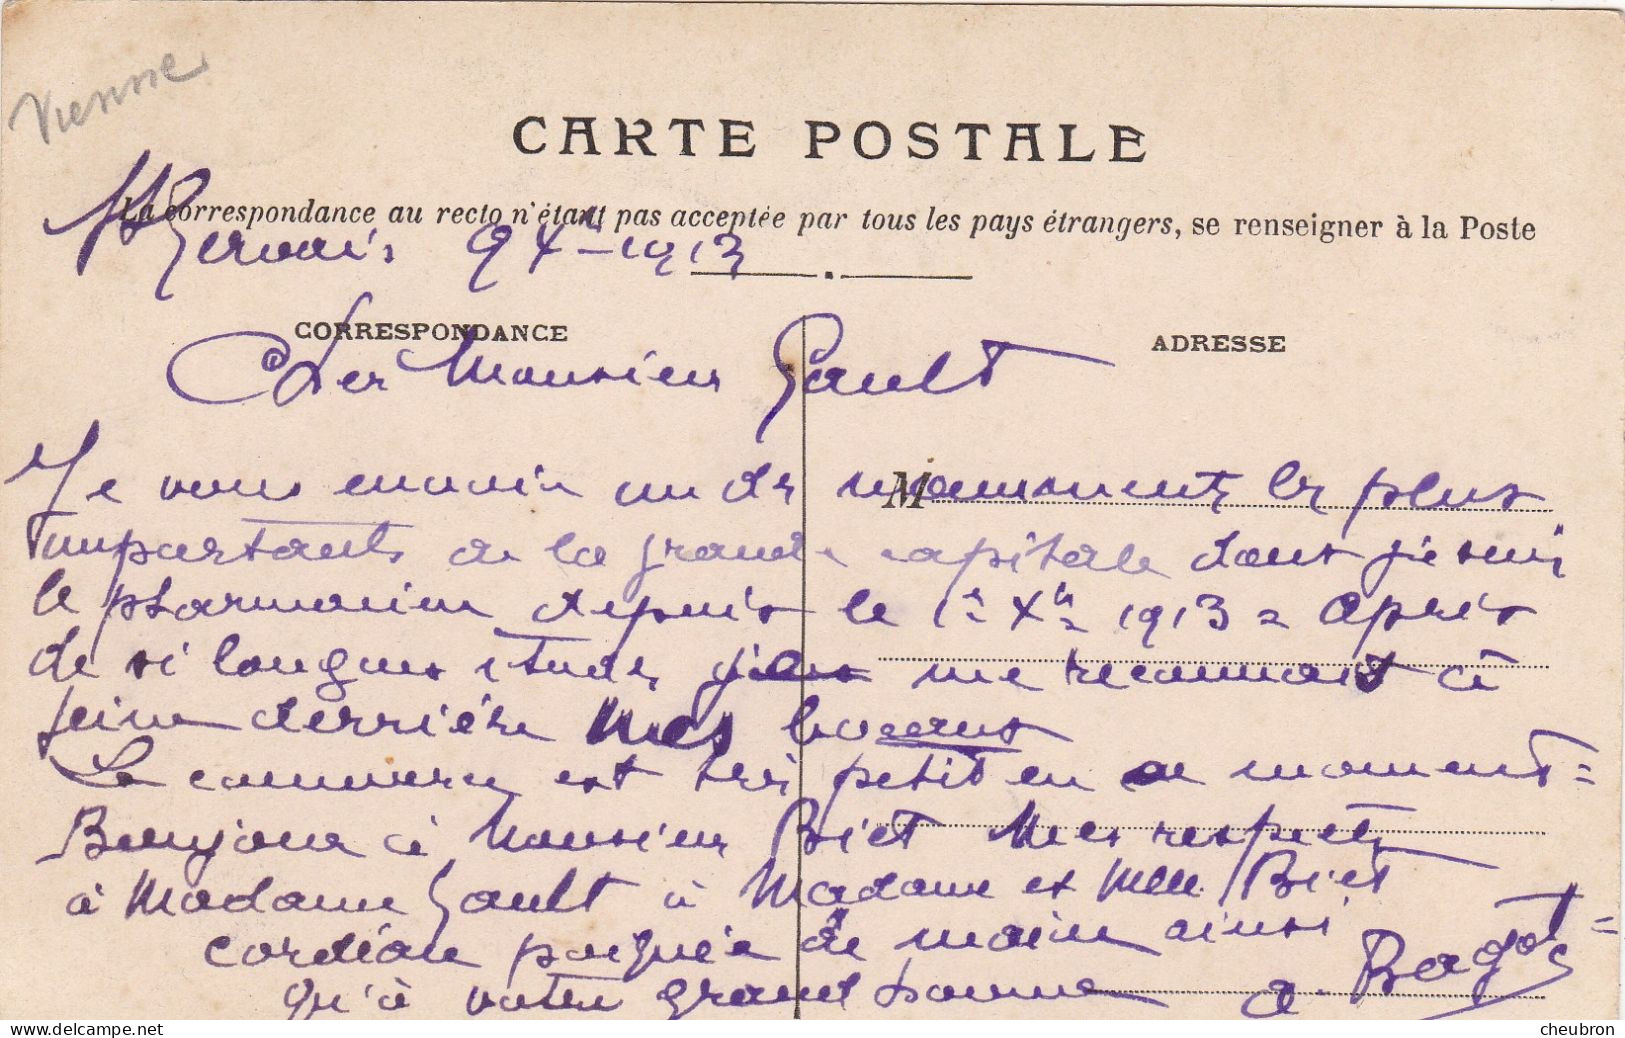 Vienne
CARTE POSTALE
La correspondance au recto n'étant pas acceptée par tous les pays étrangers, se renseigner à la Poste
St Gervais 9 Xbre 1913
CORRESPONDANCE
ADRESSE
Cher Monsieur Gault
M
Je vous envoie un des monuments les plus
importants de la grande capitale dont je suis
le pharmacien depuis le 1er Xbre 1913 = Après
de si longues études je me reconnait à
peine derrière mes bocaux
Le commerce est très petit en ce moment =
Bonjour à Monsieur Biet Mes respects
à Madame Gault à Madame et Mlle Biet
cordiale poignée de main ainsi
qu'à votre grand homme A. Bagot =
cheubron.com